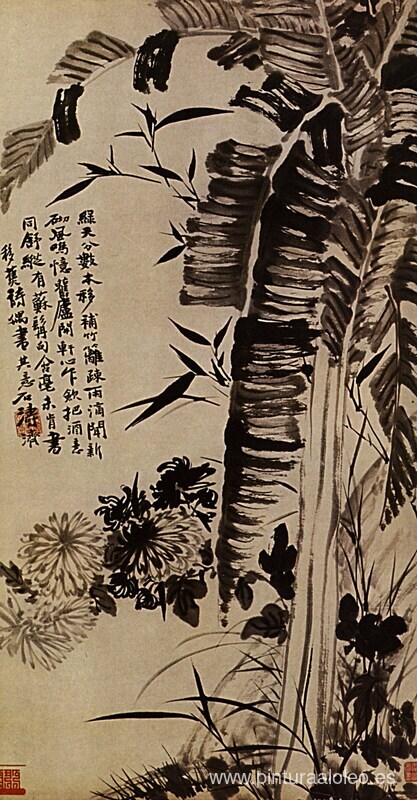 綠天分數本移補竹籬疎雨滴聞新
砌風鳴憶舊廬開軒心乍把酒意
同舒縱有蘇髯句含毫未肯書
移蕉詩偶書其意石濤濟
www.pinturaaloleo.es